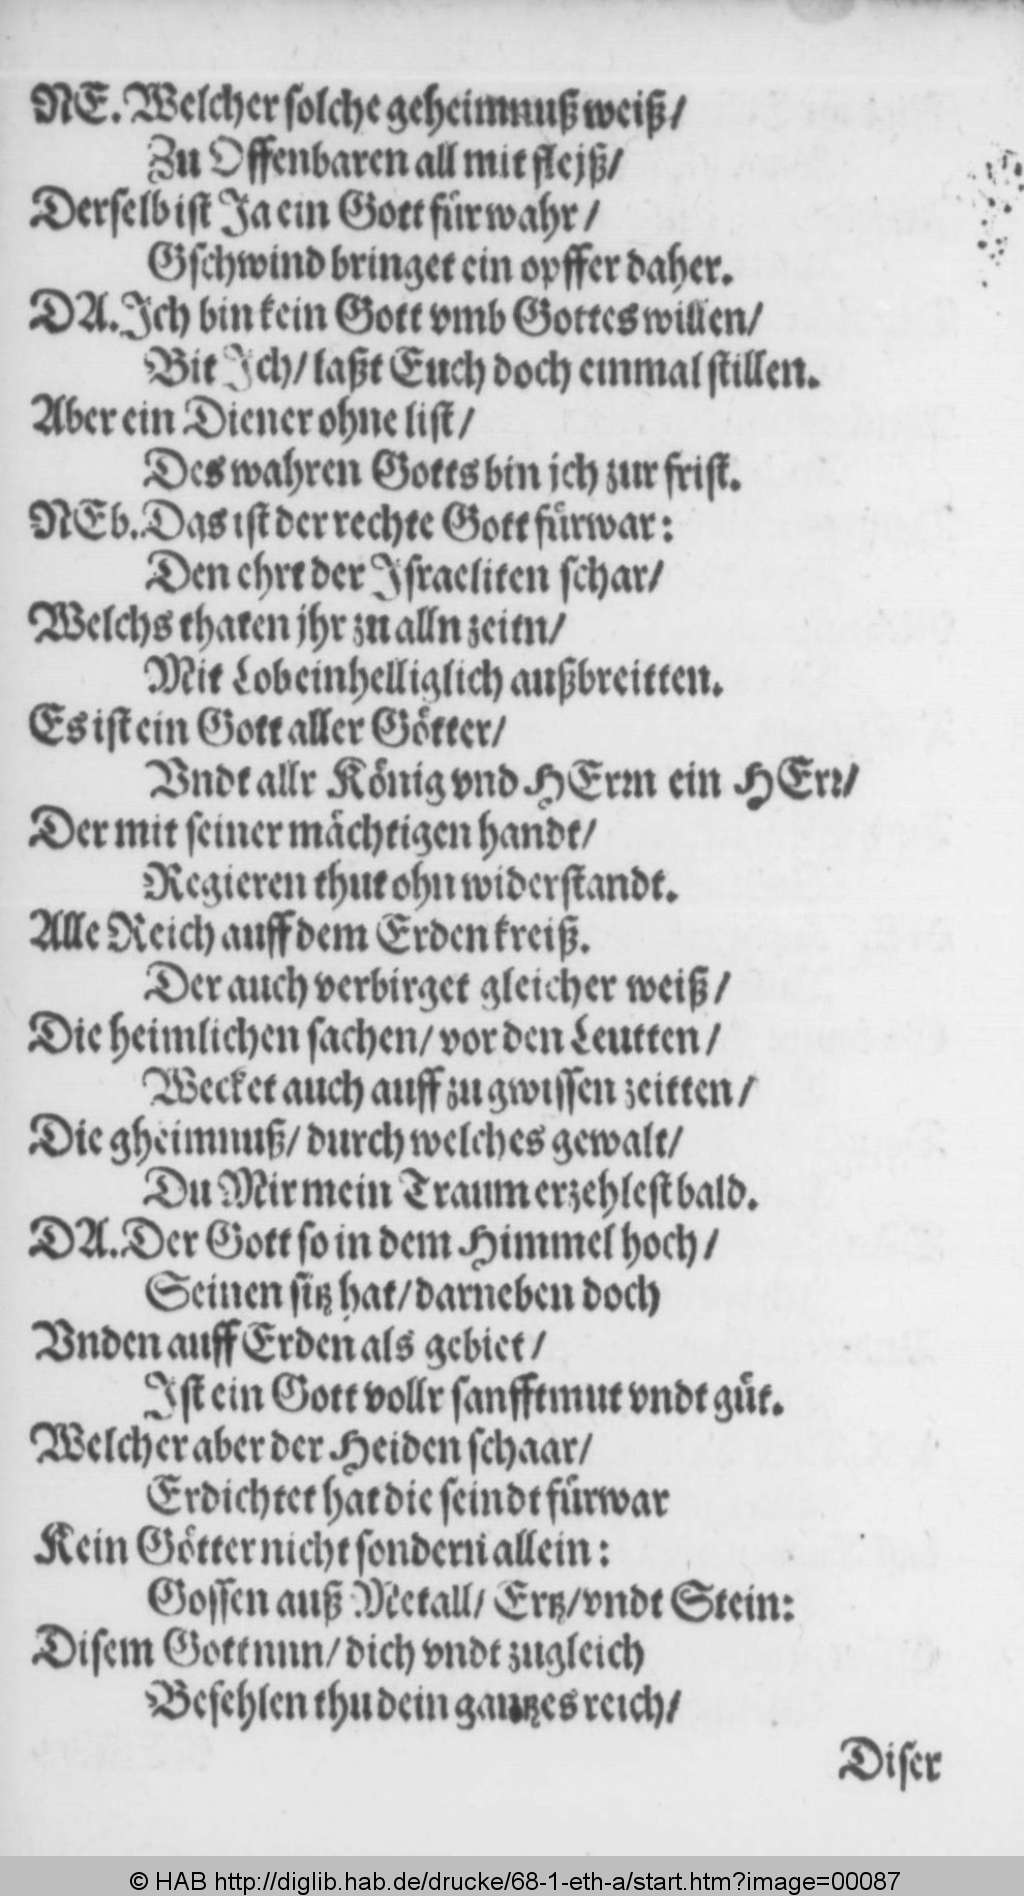 NE. Welcher solche geheimnuß weiß/
Zu Offenbaren all mit flejß/
Derselb ist Ja ein Gott fürwahr/
Gschwind bringet ein opffer daher.
DA. Ich bin kein Gott vmb Gottes willen/
Bit Ich/ laßt Euch doch einmal stillen.
Aber ein Diener ohne list/
Des wahren Gotts bin jch zur frist.
NEb. Das ist der rechte Gott fürwar:
Den ehrt der Israeliten schar/
Welchs thaten jhr zu alln zeitn/
Mit Lob einhelliglich außbreitten.
Es ist ein Gott aller Götter/
Vndt allr König vnd HErrn ein HErr/
Der mit seiner mächtigen handt/
Regieren thut ohn widerstandt.
Alle Reich auff dem Erdenkreiß.
Der auch verbirget gleicher weiß/
Die heimlichen sachen/ vor den Leutten/
Wecket auch auff zu gwissen zeitten/
Die gheimnuß/ durch welches gewalt/
Du Mir mein Traum erzehlest bald.
DA. Der Gott so in dem Himmel hoch/
Seinen sitz hat/ darneben doch
Vnden auff Erden als gebiet/
Ist ein Gott vollr sanfftmut vndt güt.
Welcher aber der Heiden schaar/
Erdichtet hat die seindt fürwar
Kein Götter nicht sondern allein:
Gossen auß Metall/ Ertz/ vndt Stein:
Disem Gott nun/ dich vndt zugleich
Befehlen thu dein gantzes reich/
Diser
© HAB http://diglib.hab.de/drucke/68-1-eth-a/start.htm?image=00087